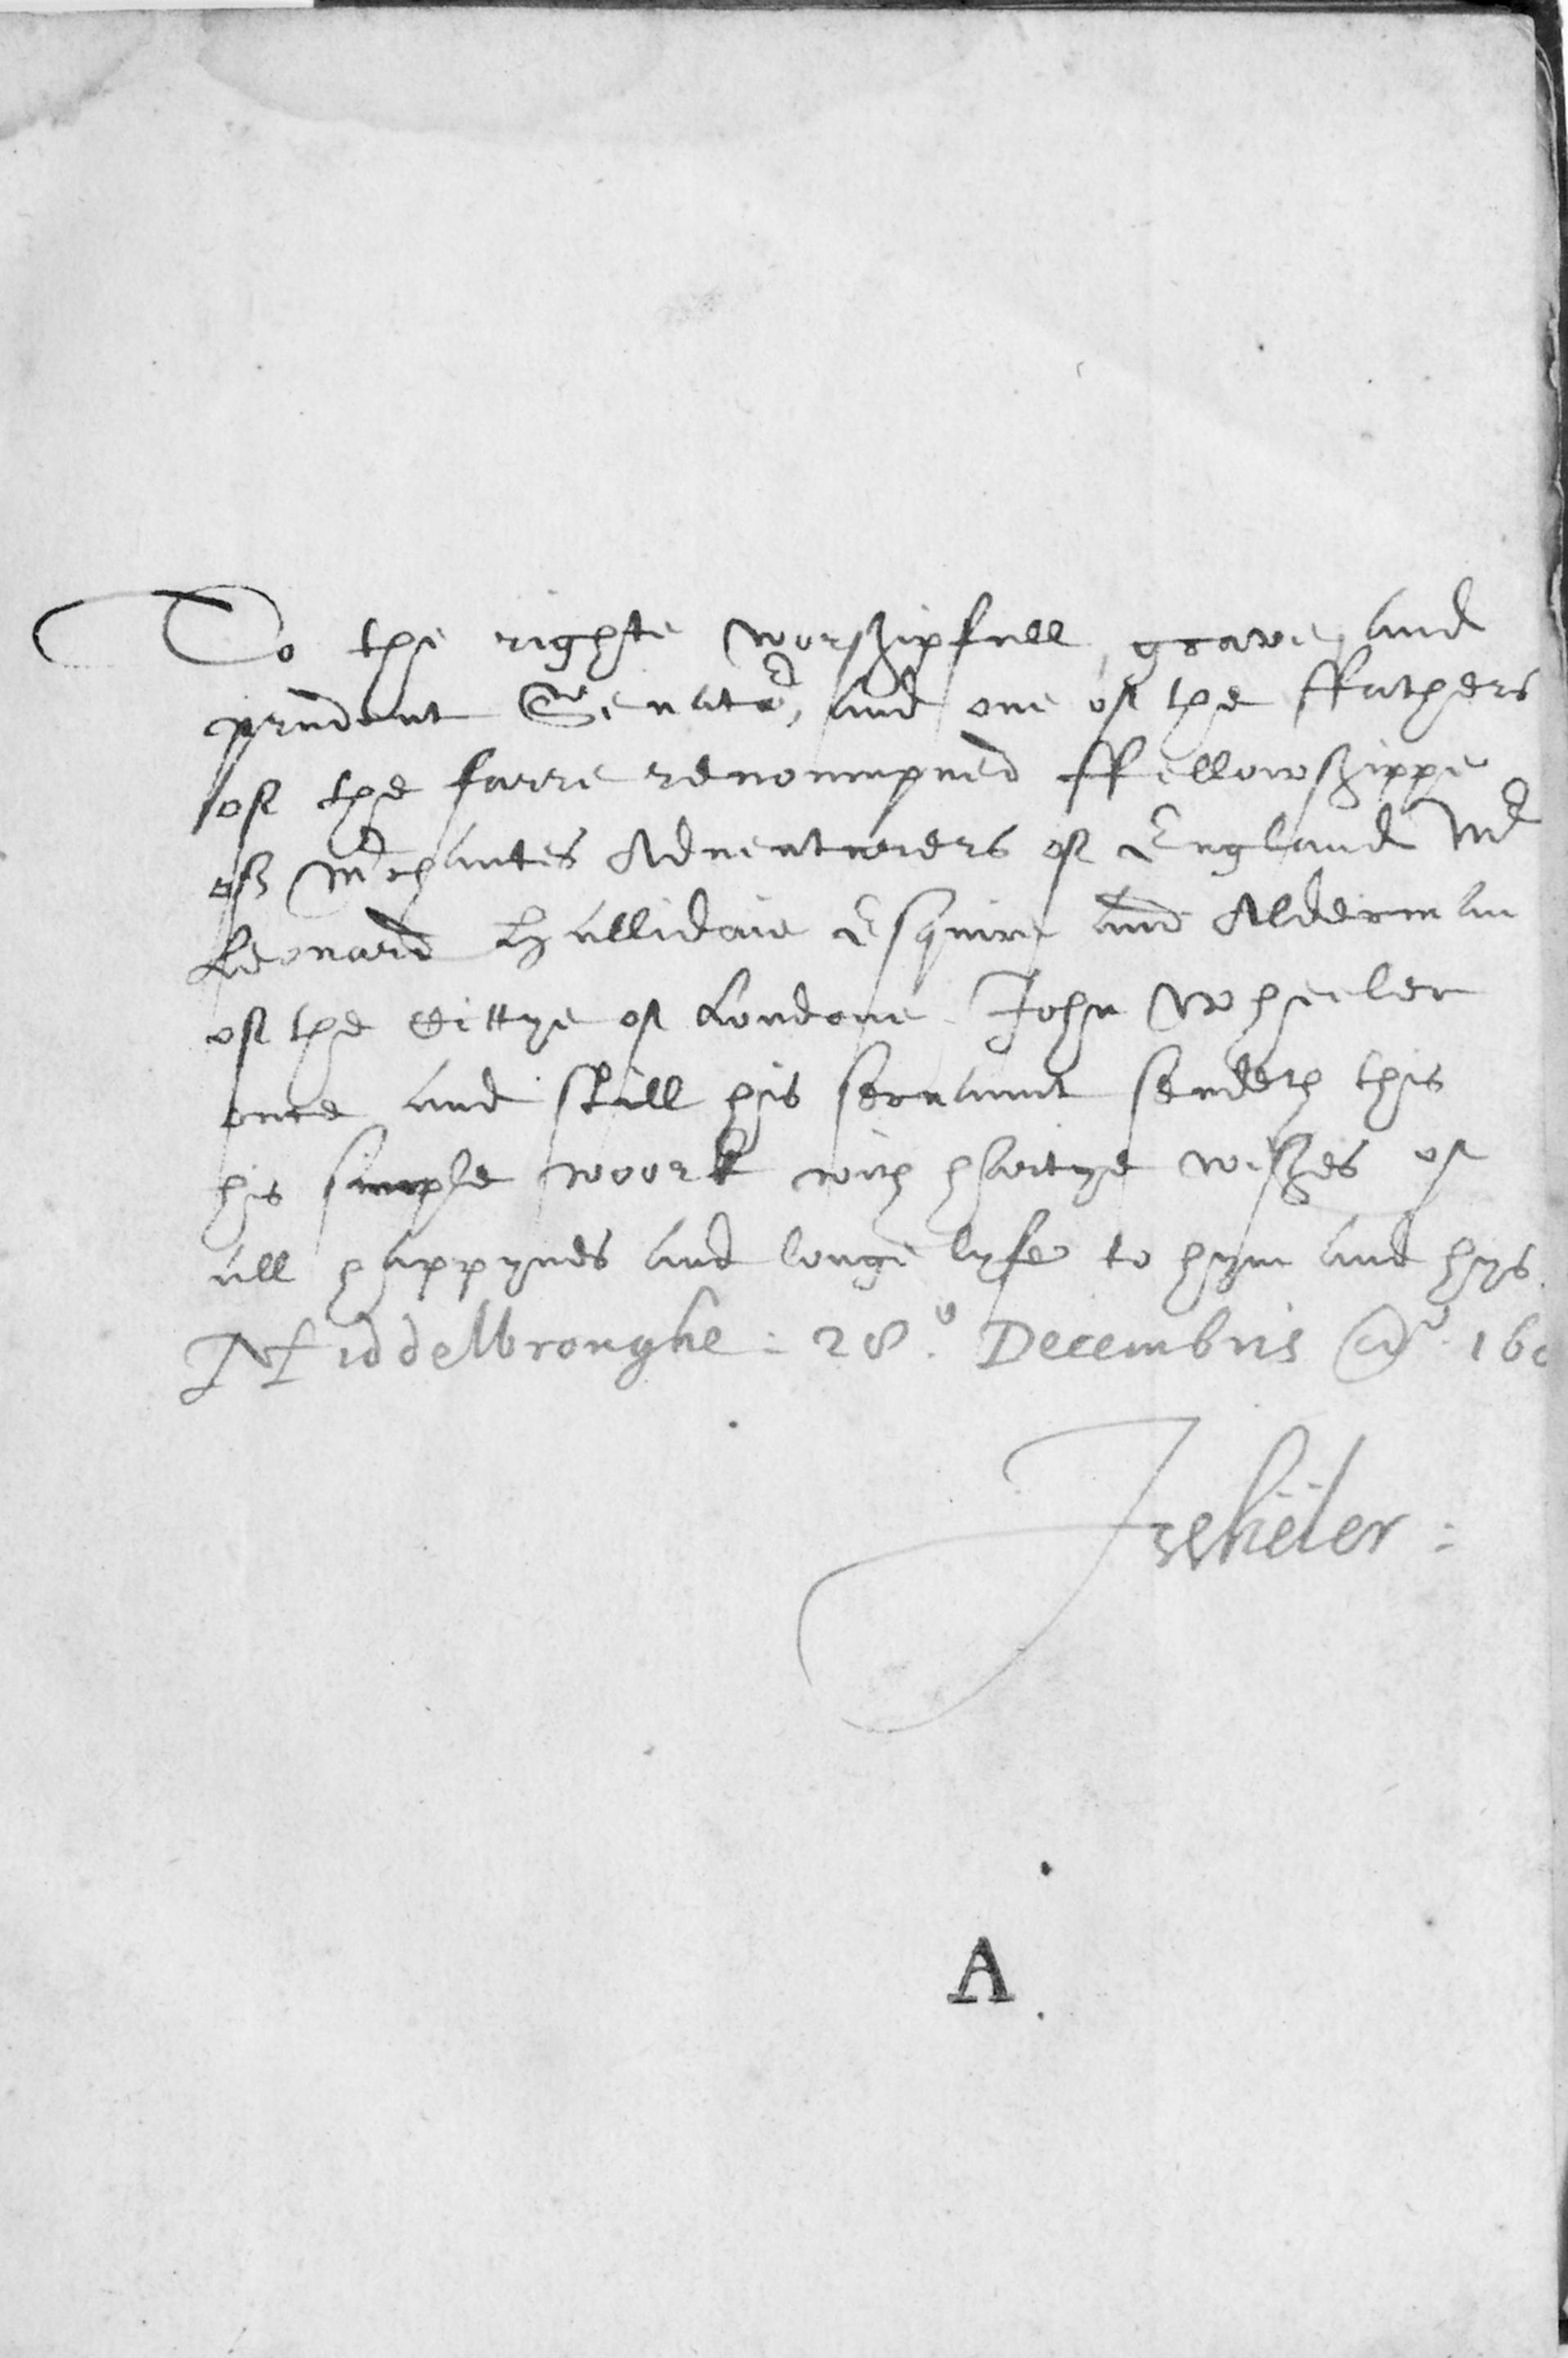 To the righte worshipfull, grave, and
prudent Senator, and one of the ffathers
of the farre renowmpned ffellowshippe
of Mrchantes Adventurers of England Mr
Leonard Hallidaie Esquire and Alderman
of the Cittye of Londone. John Wheeler
once and still his servaunt sendeth this
his simple woork with hartye wishes of
all happynes and longe lyfe to hym and hys.
Middelbroughe: 28.o Decembris Ao. 160
JWheeler:
A